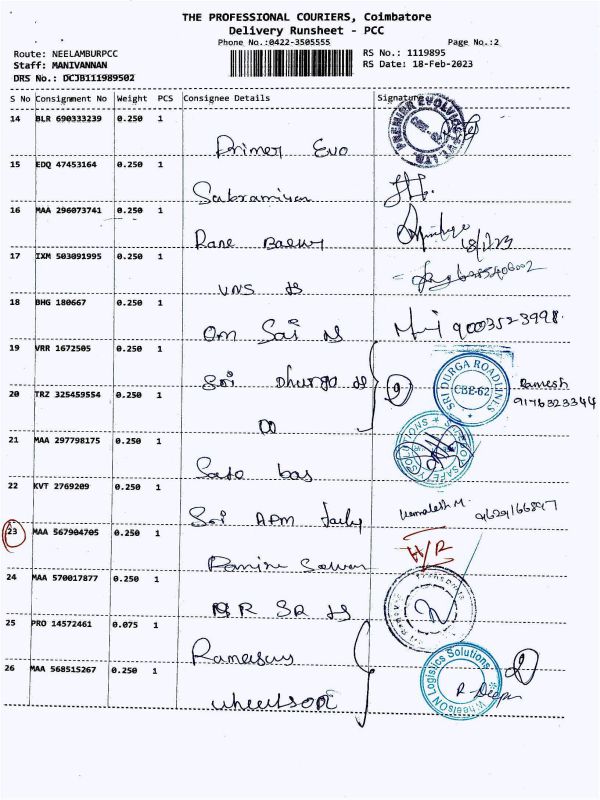 THE PROFESSIONAL COURIERS, Coimbatore
Delivery Runsheet - PCC
Phone No.:0422-3505555 Page No.:2
Route: NEELAMBURPCC RS No.: 1119895
Staff: MANIVANNAN RS Date: 18-Feb-2023
DRS No.: DCJB111989502
S No Consignment No Weight PCS Consignee Details Signature
14 BLR 690333239 0.250 1
Primer Evo
15 EDQ 47453164 0.250 1
16 MAA 296073741 0.250 1
Rane
17 IXM 503091995 0.250 1
VNS
18 BHG 180667 0.250 1
Om Sai 9003523998.
19 VRR 1672505 0.250 1
Sri Dhurga
SRI DURGA ROADLINES
CBE-62
Ramesh
9176323344
20 TRZ 325459554 0.250 1
21 MAA 297798175 0.250 1
22 KVT 2769209 0.250 1
Sri APM
Kamalesh M.
23 MAA 567904705 0.250 1
H/R
24 MAA 570017877 0.250 1
SR
25 PRO 14572461 0.075 1
26 MAA 568515267 0.250 1
WheelsON Logistics Solutions
R. Deepan
wheelson